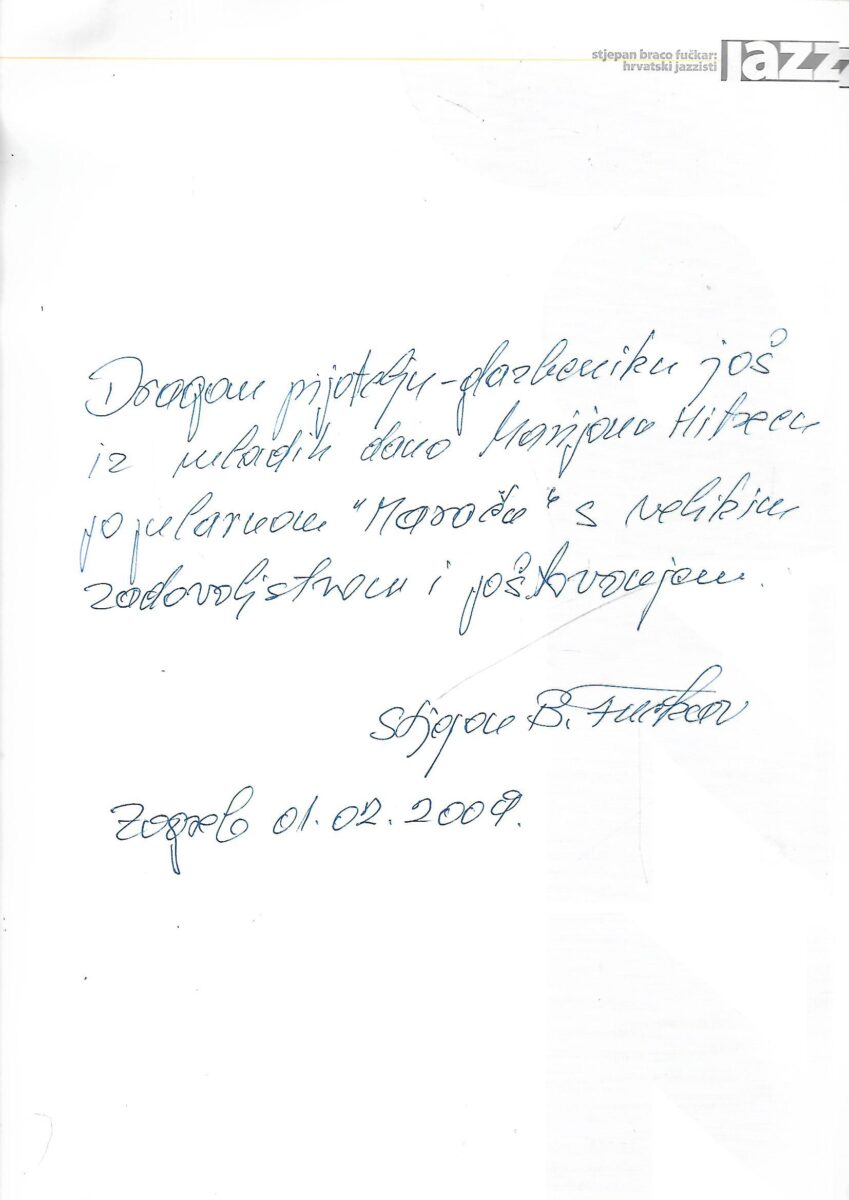 stjepan braco fučkar:
hrvatski jazzisti
jazz
Dragom prijatelju-glazbeniku još
iz mladih dana Marijanu
popularnom "Maroču" s velikim
zadovoljstvom i poštovanjem.
Stjepan B. Fučkar
Zagreb 01.02.2009.